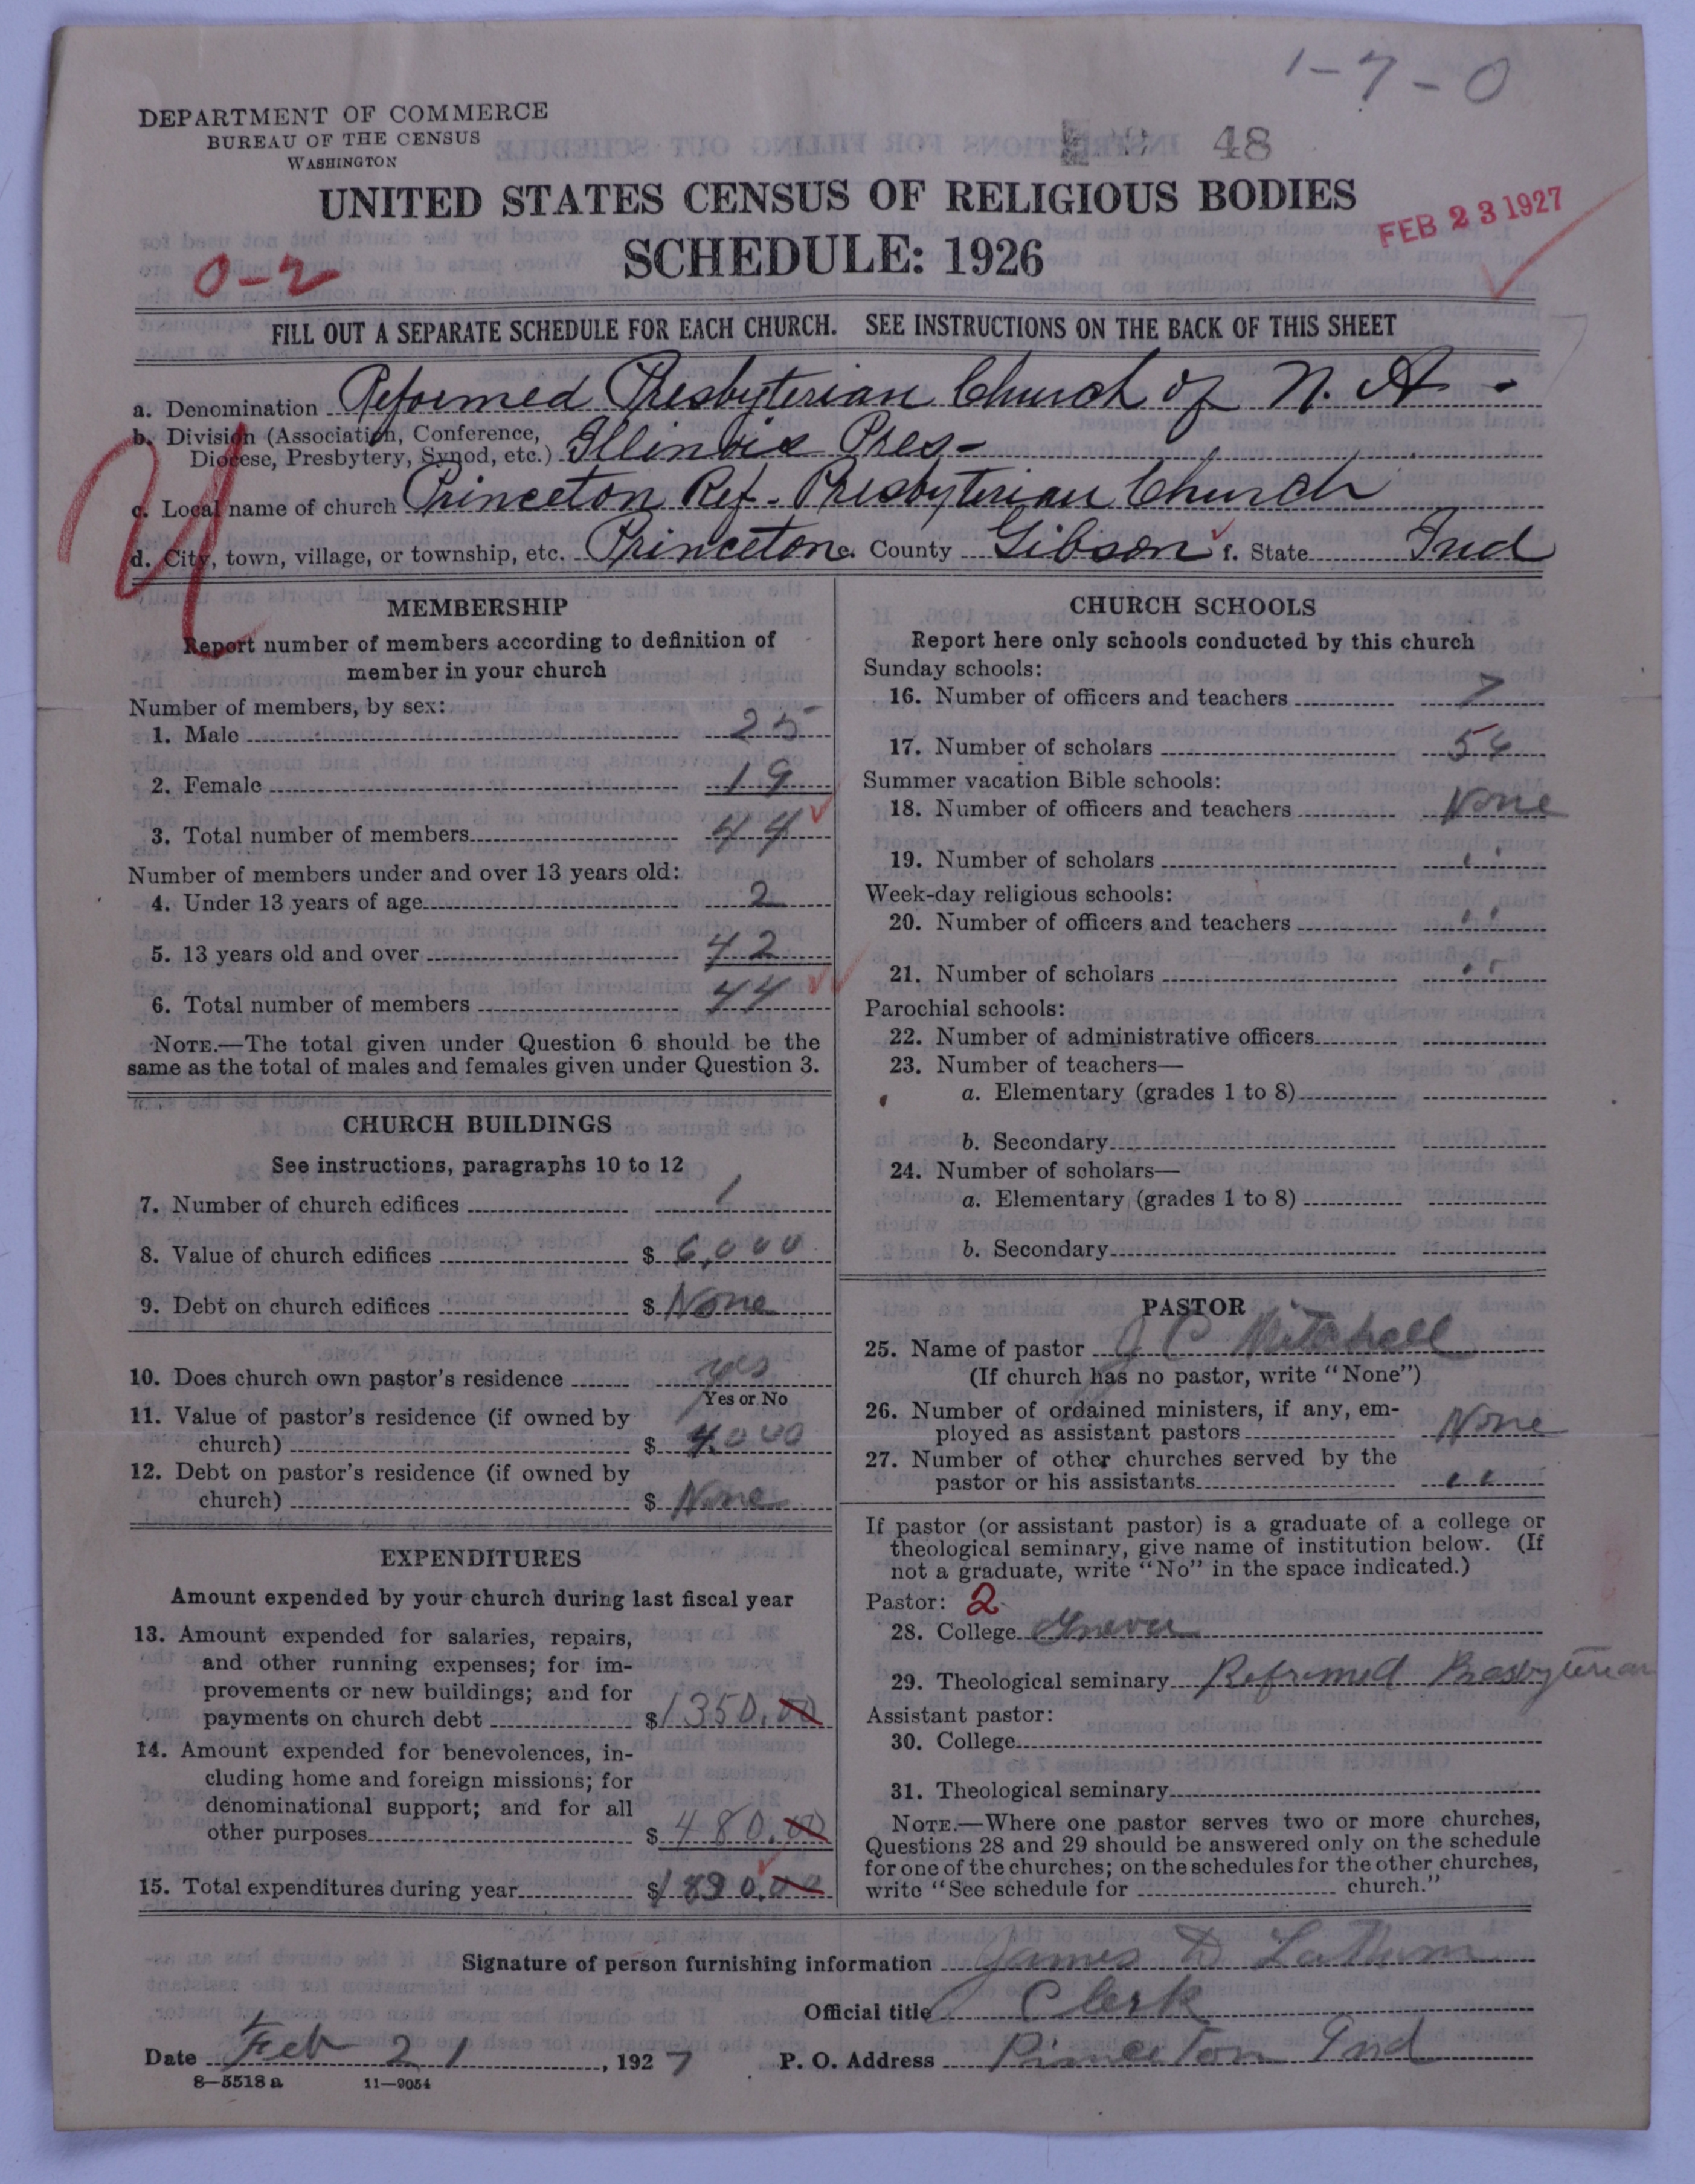 1-7-0
DEPARTMENT OF COMMERCE
BUREAU OF THE CENSUS
WASHINGTON
48
UNITED STATES CENSUS OF RELIGIOUS BODIES
FEB 23 1927
SCHEDULE: 1926
0-2
FILL OUT A SEPARATE SCHEDULE FOR EACH CHURCH. SEE INSTRUCTIONS ON THE BACK OF THIS SHEET
a. Denomination Reformed Presbyterian Church of N. A -
b. Division (Association, Conference, Diocese, Presbytery, Synod, etc.) Illinois Pres-
c. Local name of church Princeton Ref. Presbyterian Church
d. City, town, village, or township, etc. Princeton e. County Gibson f. State Ind
MEMBERSHIP
Report number of members according to definition of
member in your church
Number of members, by sex:
1. Male 25
2. Female 19
3. Total number of members 44
Number of members under and over 13 years old:
4. Under 13 years of age 2
5. 13 years old and over 42
6. Total number of members 44
NOTE.—The total given under Question 6 should be the
same as the total of males and females given under Question 3.
CHURCH BUILDINGS
See instructions, paragraphs 10 to 12
7. Number of church edifices 1
8. Value of church edifices $ 6,000
9. Debt on church edifices $ None
10. Does church own pastor's residence yes
Yes or No
11. Value of pastor's residence (if owned by
church) $ 4,000
12. Debt on pastor's residence (if owned by
church) $ None
EXPENDITURES
Amount expended by your church during last fiscal year
13. Amount expended for salaries, repairs,
and other running expenses; for im-
provements or new buildings; and for
payments on church debt $ 1350.00
14. Amount expended for benevolences, in-
cluding home and foreign missions; for
denominational support; and for all
other purposes $ 480.00
15. Total expenditures during year $ 1830.00
CHURCH SCHOOLS
Report here only schools conducted by this church
Sunday schools:
16. Number of officers and teachers 7
17. Number of scholars 54
Summer vacation Bible schools:
18. Number of officers and teachers None
19. Number of scholars "
Week-day religious schools:
20. Number of officers and teachers "
21. Number of scholars "
Parochial schools:
22. Number of administrative officers
23. Number of teachers—
a. Elementary (grades 1 to 8)
b. Secondary
24. Number of scholars—
a. Elementary (grades 1 to 8)
b. Secondary
PASTOR
25. Name of pastor J C Mitchell
(If church has no pastor, write "None")
26. Number of ordained ministers, if any, em-
ployed as assistant pastors None
27. Number of other churches served by the
pastor or his assistants "
If pastor (or assistant pastor) is a graduate of a college or
theological seminary, give name of institution below. (If
not a graduate, write "No" in the space indicated.)
Pastor: 2
28. College Geneva
29. Theological seminary Reformed Presbyterian
Assistant pastor:
30. College
31. Theological seminary
NOTE.—Where one pastor serves two or more churches,
Questions 28 and 29 should be answered only on the schedule
for one of the churches; on the schedules for the other churches,
write "See schedule for church."
Signature of person furnishing information James D Lathum
Official title Clerk
Date Feb 21, 1927 P. O. Address Princeton Ind
8-5518a 11-9054